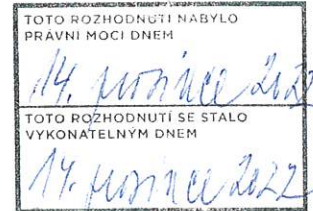 TOTO ROZHODNUTÍ NABYLO
PRÁVNÍ MOCI DNEM
14. prosince 2022
TOTO ROZHODNUTÍ SE STALO
VYKONATELNÝM DNEM
14. prosince 2022